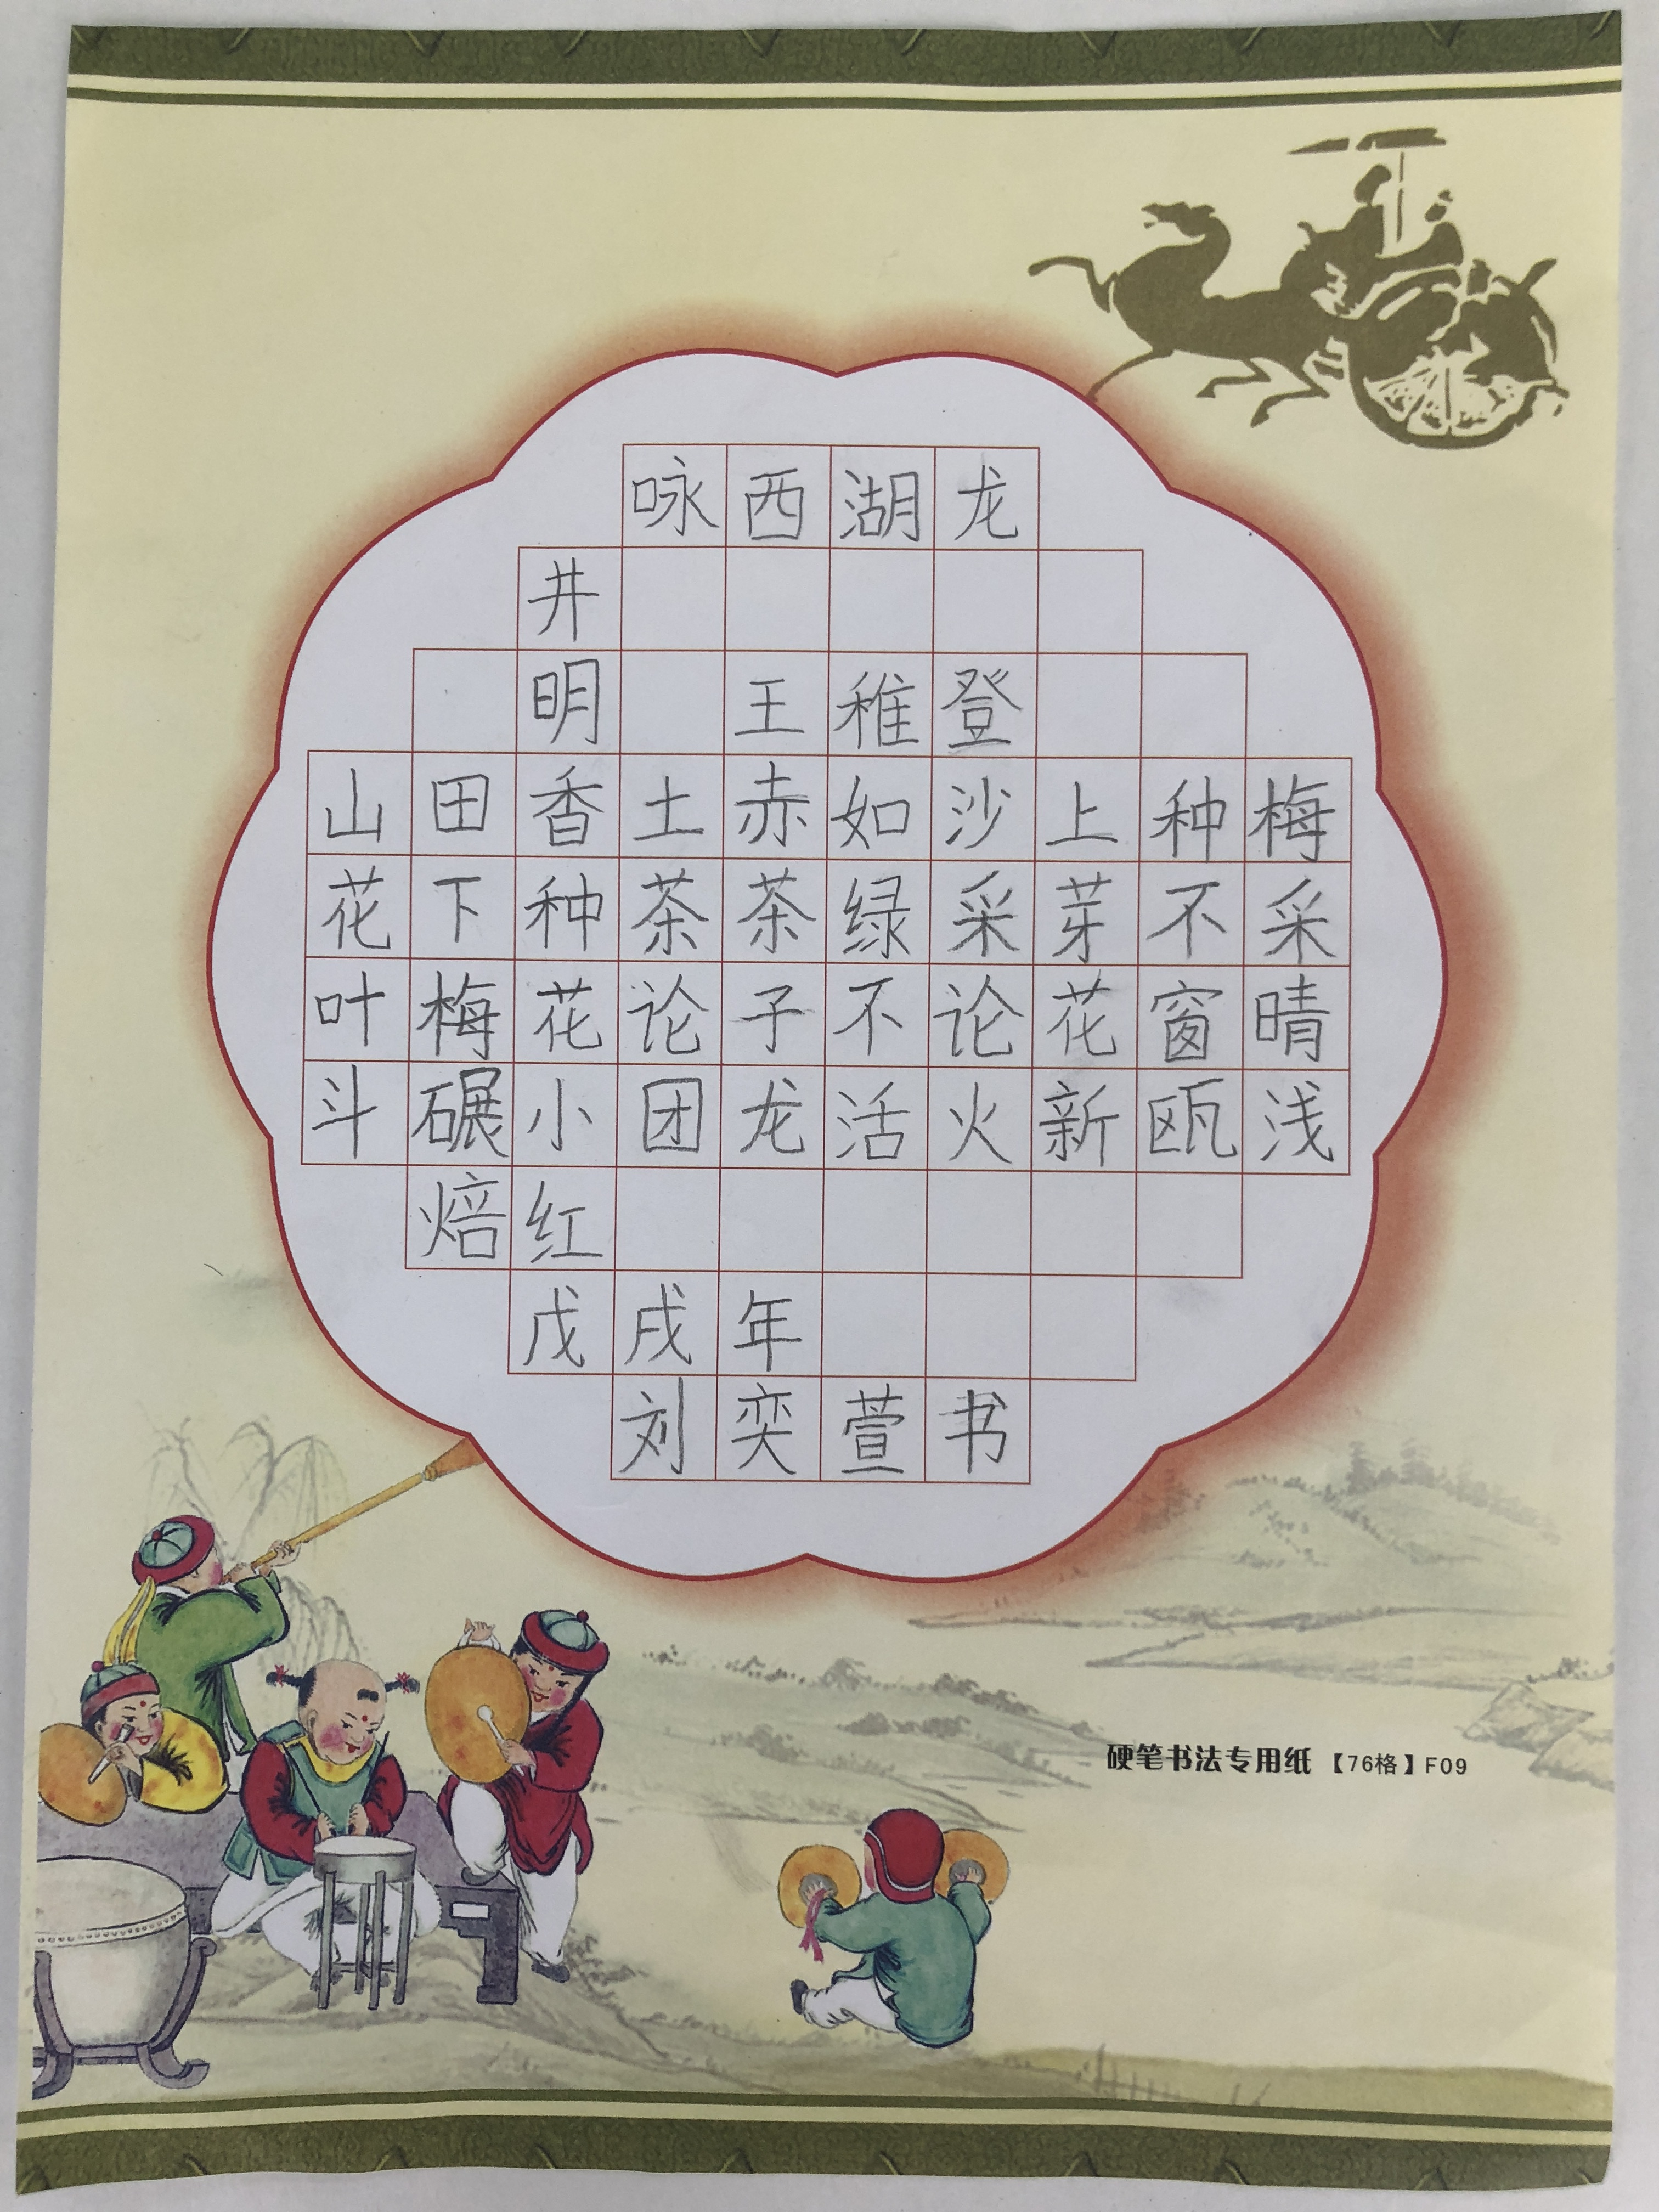 咏西湖龙
井
明 王稚登
山田香土赤如沙上种梅
花下种茶茶绿采芽不采
叶梅花论子不论花窗晴
斗碾小团龙活火新瓯浅
焙红
戊戌年
刘奕萱书
硬笔书法专用纸【76格】F09